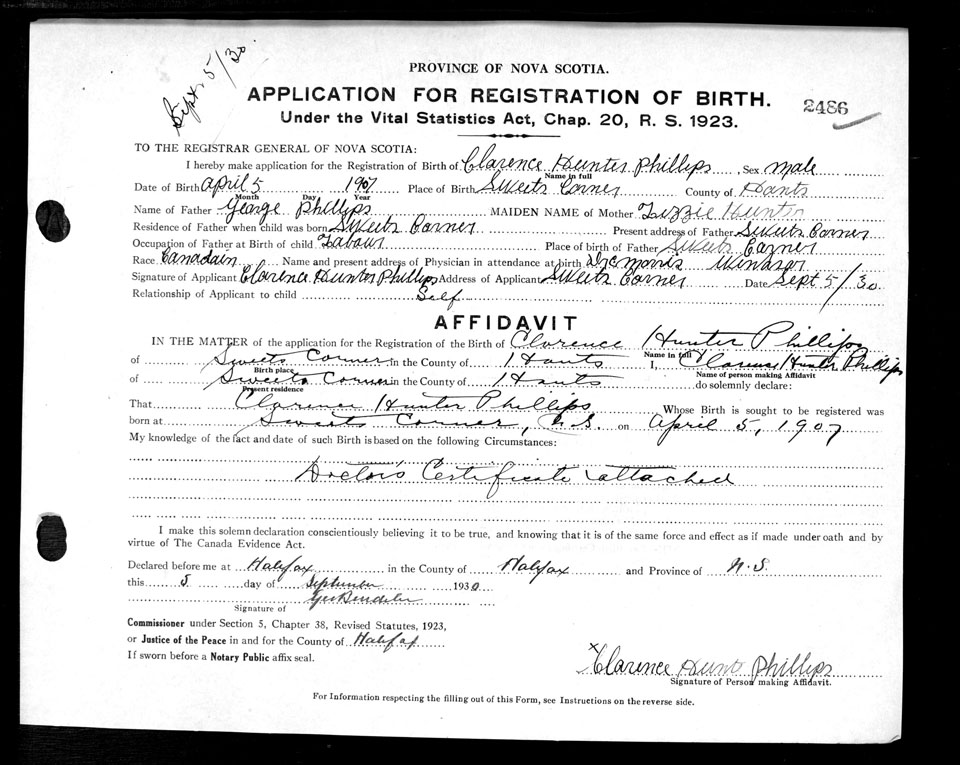 Sept. 5/30
PROVINCE OF NOVA SCOTIA.
APPLICATION FOR REGISTRATION OF BIRTH.
2486
Under the Vital Statistics Act, Chap. 20, R. S. 1923.
TO THE REGISTRAR GENERAL OF NOVA SCOTIA:
I hereby make application for the Registration of Birth of Clarence Hunter Phillips, Sex male
Name in full
Date of Birth april 5 1907 Place of Birth Sweets Corner County of Hants
Month Day Year
Name of Father George Phillips MAIDEN NAME of Mother Lizzie Hunter
Residence of Father when child was born Sweets Corner Present address of Father Sweets Corner
Occupation of Father at Birth of child Labour Place of birth of Father Sweets Corner
Race Canadain Name and present address of Physician in attendance at birth Morris Windsor
Signature of Applicant Clarence Hunter Phillips Address of Applicant Sweets Corner Date Sept 5/30
Relationship of Applicant to child Self
AFFIDAVIT
IN THE MATTER of the application for the Registration of the Birth of Clarence Hunter Phillips
of Sweets Corner in the County of Hants I, x Clarence Hunter Phillips
Birth place Name in full
of Sweets Corner in the County of Hants do solemnly declare:
Present residence Name of person making Affidavit
That Clarence Hunter Phillips Whose Birth is sought to be registered was
born at Sweets Corner, N.S. on April 5, 1907
My knowledge of the fact and date of such Birth is based on the following Circumstances:
Doctor's Certificate attached
I make this solemn declaration conscientiously believing it to be true, and knowing that it is of the same force and effect as if made under oath and by
virtue of The Canada Evidence Act.
Declared before me at Halifax in the County of Halifax and Province of N.S.
this 5 day of September 1930
Signature of
Commissioner under Section 5, Chapter 38, Revised Statutes, 1923,
or Justice of the Peace in and for the County of Halifax
If sworn before a Notary Public affix seal.
x Clarence Hunt Phillips
Signature of Person making Affidavit.
For Information respecting the filling out of this Form, see Instructions on the reverse side.